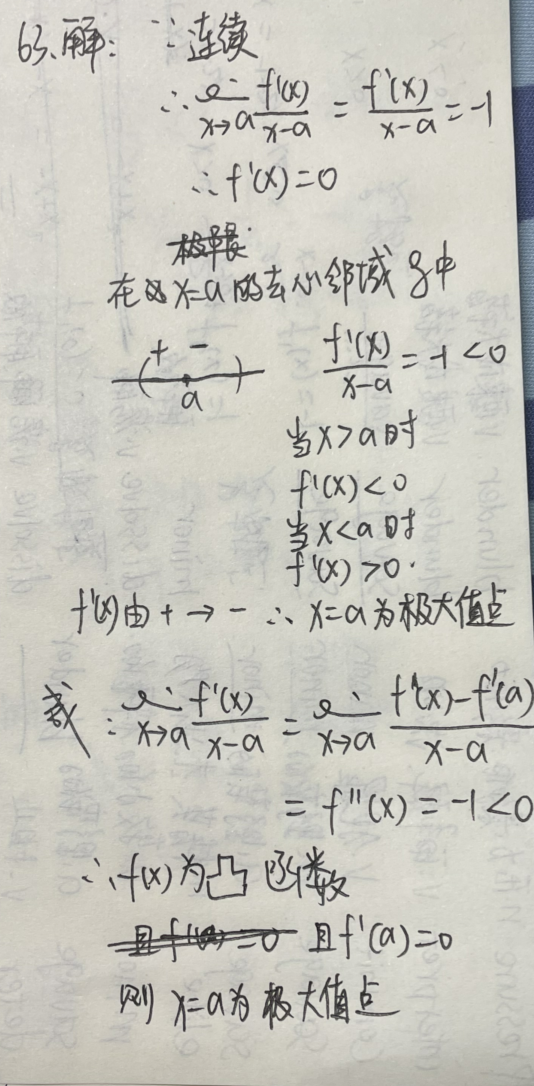 63.解: ∵连续
∴ lim x→a f'(x)/(x-a) = f'(x)/(x-a) = -1
∴ f'(x)=0
在 x=a 的去心邻域 δ中
+ -
( a ) f'(x)/(x-a) = -1 < 0
当x>a时
f'(x)<0
当x<a时
f'(x)>0.
f'(x)由 + → - ∴ x=a为极大值点
或 ∵ lim x→a f'(x)/(x-a) = lim x→a (f'(x)-f'(a))/(x-a)
= f''(x) = -1<0
∴ f(x)为凸函数
且f'(a)=0
则 x=a为极大值点